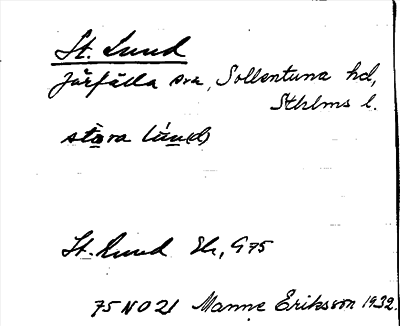 St. Lund
Järfälla sn, Sollentuna hd,
Sthlms l.
stòra lún(d)
St. Lund Ek, G75
75 NO 21 Manne Eriksson 1932.